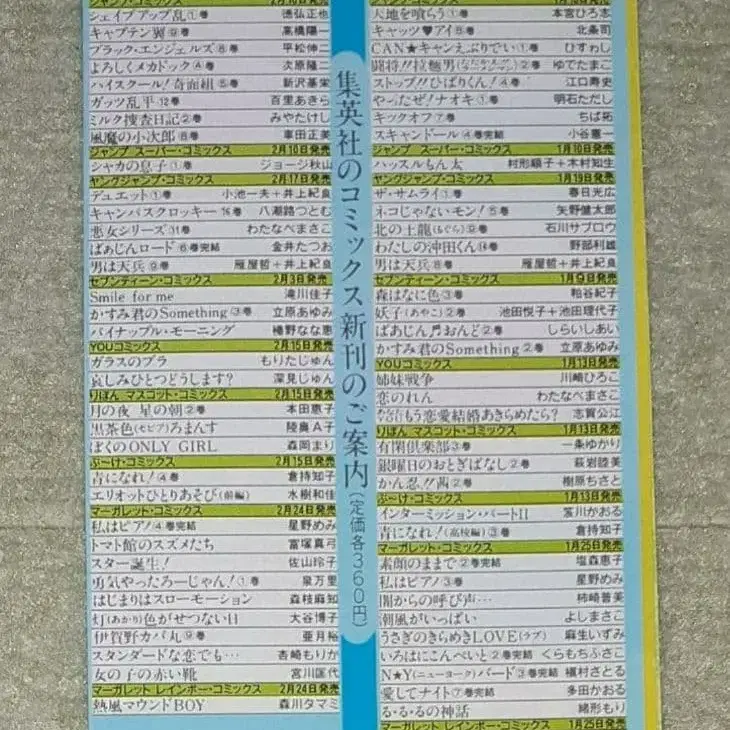 ジャンプ・コミックス 2月10日発売
シェイプアップ乱①巻 徳弘正也
キャプテン翼⑨巻 高橋陽一
ブラック・エンジェルズ⑧巻 平松伸二
よろしくメカドック④巻 次原隆二
ハイスクール!奇面組⑤巻 新沢基栄
ガッツ乱平⑫巻 百里あきら
ミルク捜査日記②巻 みやたけし
風魔の小次郎⑧巻 車田正美
ジャンプ スーパー・コミックス 2月10日発売
シャカの息子①巻 ジョージ秋山
ヤングジャンプ・コミックス 2月17日発売
デュエット①巻 小池一夫+井上紀良
キャンパスクロッキー⑯巻 八潮路つとむ
悪女シリーズ⑪巻 わたなべまさこ
ばぁじんロード⑥巻完結 金井たつお
男は天兵⑨巻 雁屋哲+井上紀良
セブンティーン・コミックス 2月3日発売
Smile for me 滝川佳子
かすみ君のSomething③巻 立原あゆみ
パイナップル・モーニング 樋野なな恵
YOUコミックス 2月15日発売
ガラスのブラ もりたじゅん
哀しみひとつどうします? 深見じゅん
りぼん マスコット・コミックス 2月15日発売
月の夜 星の朝②巻 本田恵子
黒茶色(セピア)ろまんす 陸奥A子
ぼくのONLY GIRL 森岡まり
ぶ〜け・コミックス 2月15日発売
青になれ!④巻 倉持知子
エリオットひとりあそび(前編) 水樹和佳
マーガレット・コミックス 2月24日発売
私はピアノ④巻完結 星野めみ
トマト館のスズメたち 富塚真弓
スター誕生! 佐山玲子
勇気やったろーじゃん!①巻 泉万里
はじまりはスローモーション 森枝麻知
灯(あかり)色がせつない日 大谷博子
伊賀野カバ丸⑨巻 亜月裕
スタンダードな恋でも… 杏崎もりか
女の子の赤い靴 宮川匡代
マーガレット レインボー・コミックス 2月24日発売
熱風マウンドBOY 森川タマミ
集英社のコミックス新刊のご案内(定価各360円)
ジャンプ・コミックス 1月10日発売
天地を喰らう①巻 本宮ひろ志
キャッツ♥アイ⑧巻 北条司
CAN★キャンえぶりでい①巻 ひすわし
闘将!!拉麵男 ②巻 ゆでたまご
ストップ!!ひばりくん!④巻 江口寿史
やったぜ!ナオキ①巻 明石ただし
キックオフ⑦巻 ちば拓
スキャンドール④巻完結 小谷憲一
ジャンプ スーパー・コミックス 1月10日発売
ハッスルもん太 村形順子+木村知生
ヤングジャンプ・コミックス 1月19日発売
ザ・サムライ①巻 春日光広
ネコじゃないモン!⑤巻 矢野健太郎
北の土龍(もぐら)⑫巻 石川サブロウ
わたしの沖田くん⑭巻 野部利雄
男は天兵⑧巻 雁屋哲+井上紀良
セブンティーン・コミックス 1月9日発売
森はなに色③巻 粕谷紀子
妖子(あやこ)②巻 池田悦子+池田理代子
ばあじん♬おんど②巻 しらいしあい
かすみ君のSomething②巻 立原あゆみ
YOUコミックス 1月13日発売
姉妹戦争 川崎ひろこ
恋のれん わたなべまさこ
もう恋愛結婚あきらめたら? 志賀公江
りぼん マスコット・コミックス 1月13日発売
有閑倶楽部③巻 一条ゆかり
銀曜日のおとぎばなし②巻 萩岩睦美
かん忍!!茜②巻 樹原ちさと
ぶ〜け・コミックス 1月13日発売
インターミッション・パートII 笈川かおる
青になれ!(高校編)③巻 倉持知子
マーガレット・コミックス 1月25日発売
素顔のままで②巻完結 塩森恵子
私はピアノ③巻 星野めみ
闇からの呼び声… 柿崎普美
潮風がいっぱい よしまさこ
うさぎのきらめきLOVE(ラブ) 麻生いずみ
いろはにこんぺいと②巻完結 くらもちふさこ
N★Y(ニューヨーク)バード③巻完結 槇村さとる
愛してナイト⑦巻完結 多田かおる
る・る・るの神話 緒形もり
マーガレット レインボー・コミックス 1月25日発売